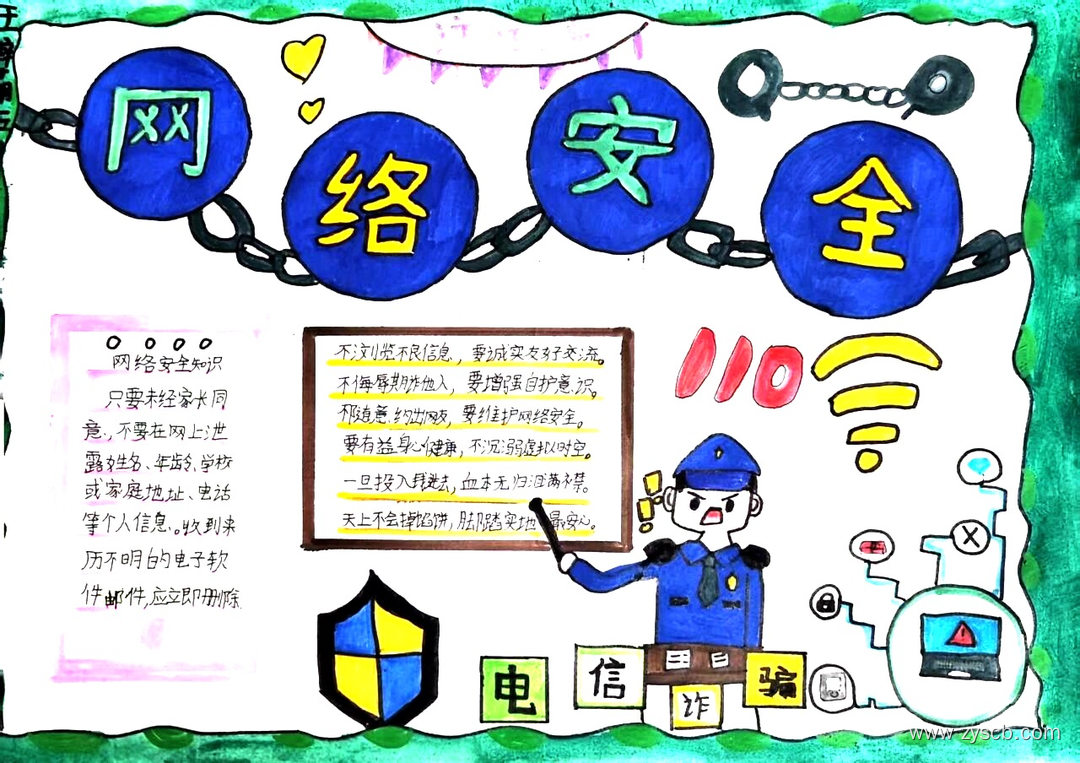 网络安全
网络安全知识
只要未经家长同
意,不要在网上泄
露姓名、年龄、学校
或家庭地址、电话
等个人信息。收到来
历不明的电子软
件邮件,应立即删除
不浏览不良信息,要诚实友好交流。
不侮辱期诈他人,要增强自护意识。
随意约出网友,要维护网络安全。
要有益身心健康,不沉溺虚拟时空。
一旦投入去,血本无归泪满襟。
天上不会掉馅饼,脚踏实地最安心。
110
电信诈骗
www.zyscb.com